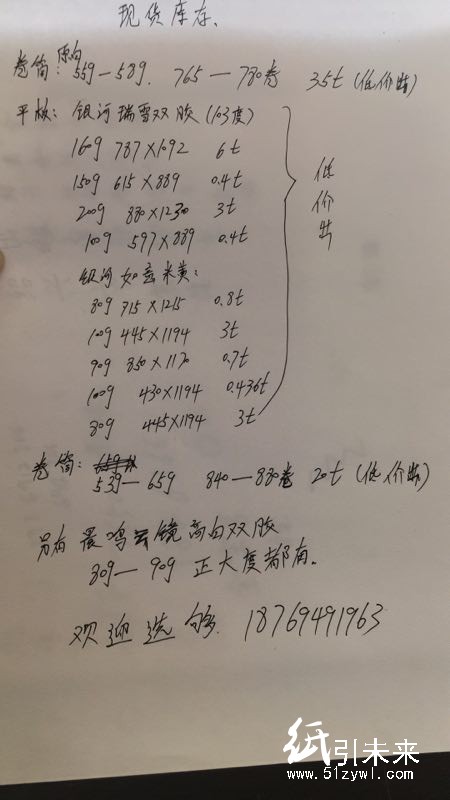 现货库存、
卷筒: 原白
55g—58g. 765—780卷 35t (低价出)
平板: 银河瑞雪双胶 (103度)
160g 787×1092 6t
150g 615×889 0.4t
200g 880×1230 3t
100g 597×889 0.4t
低价出
银河如意米黄:
80g 715×1215 0.8t
100g 445×1194 3t
90g 850×1170 0.7t
100g 430×1194 0.436t
80g 445×1194 3t
卷筒:
53g—65g 840—880卷 20t (低价出)
另有 晨鸣云镜高白双胶
80g—90g 正大度都有。
欢迎选购. 18769491963
纸引未来
www.51zywl.com